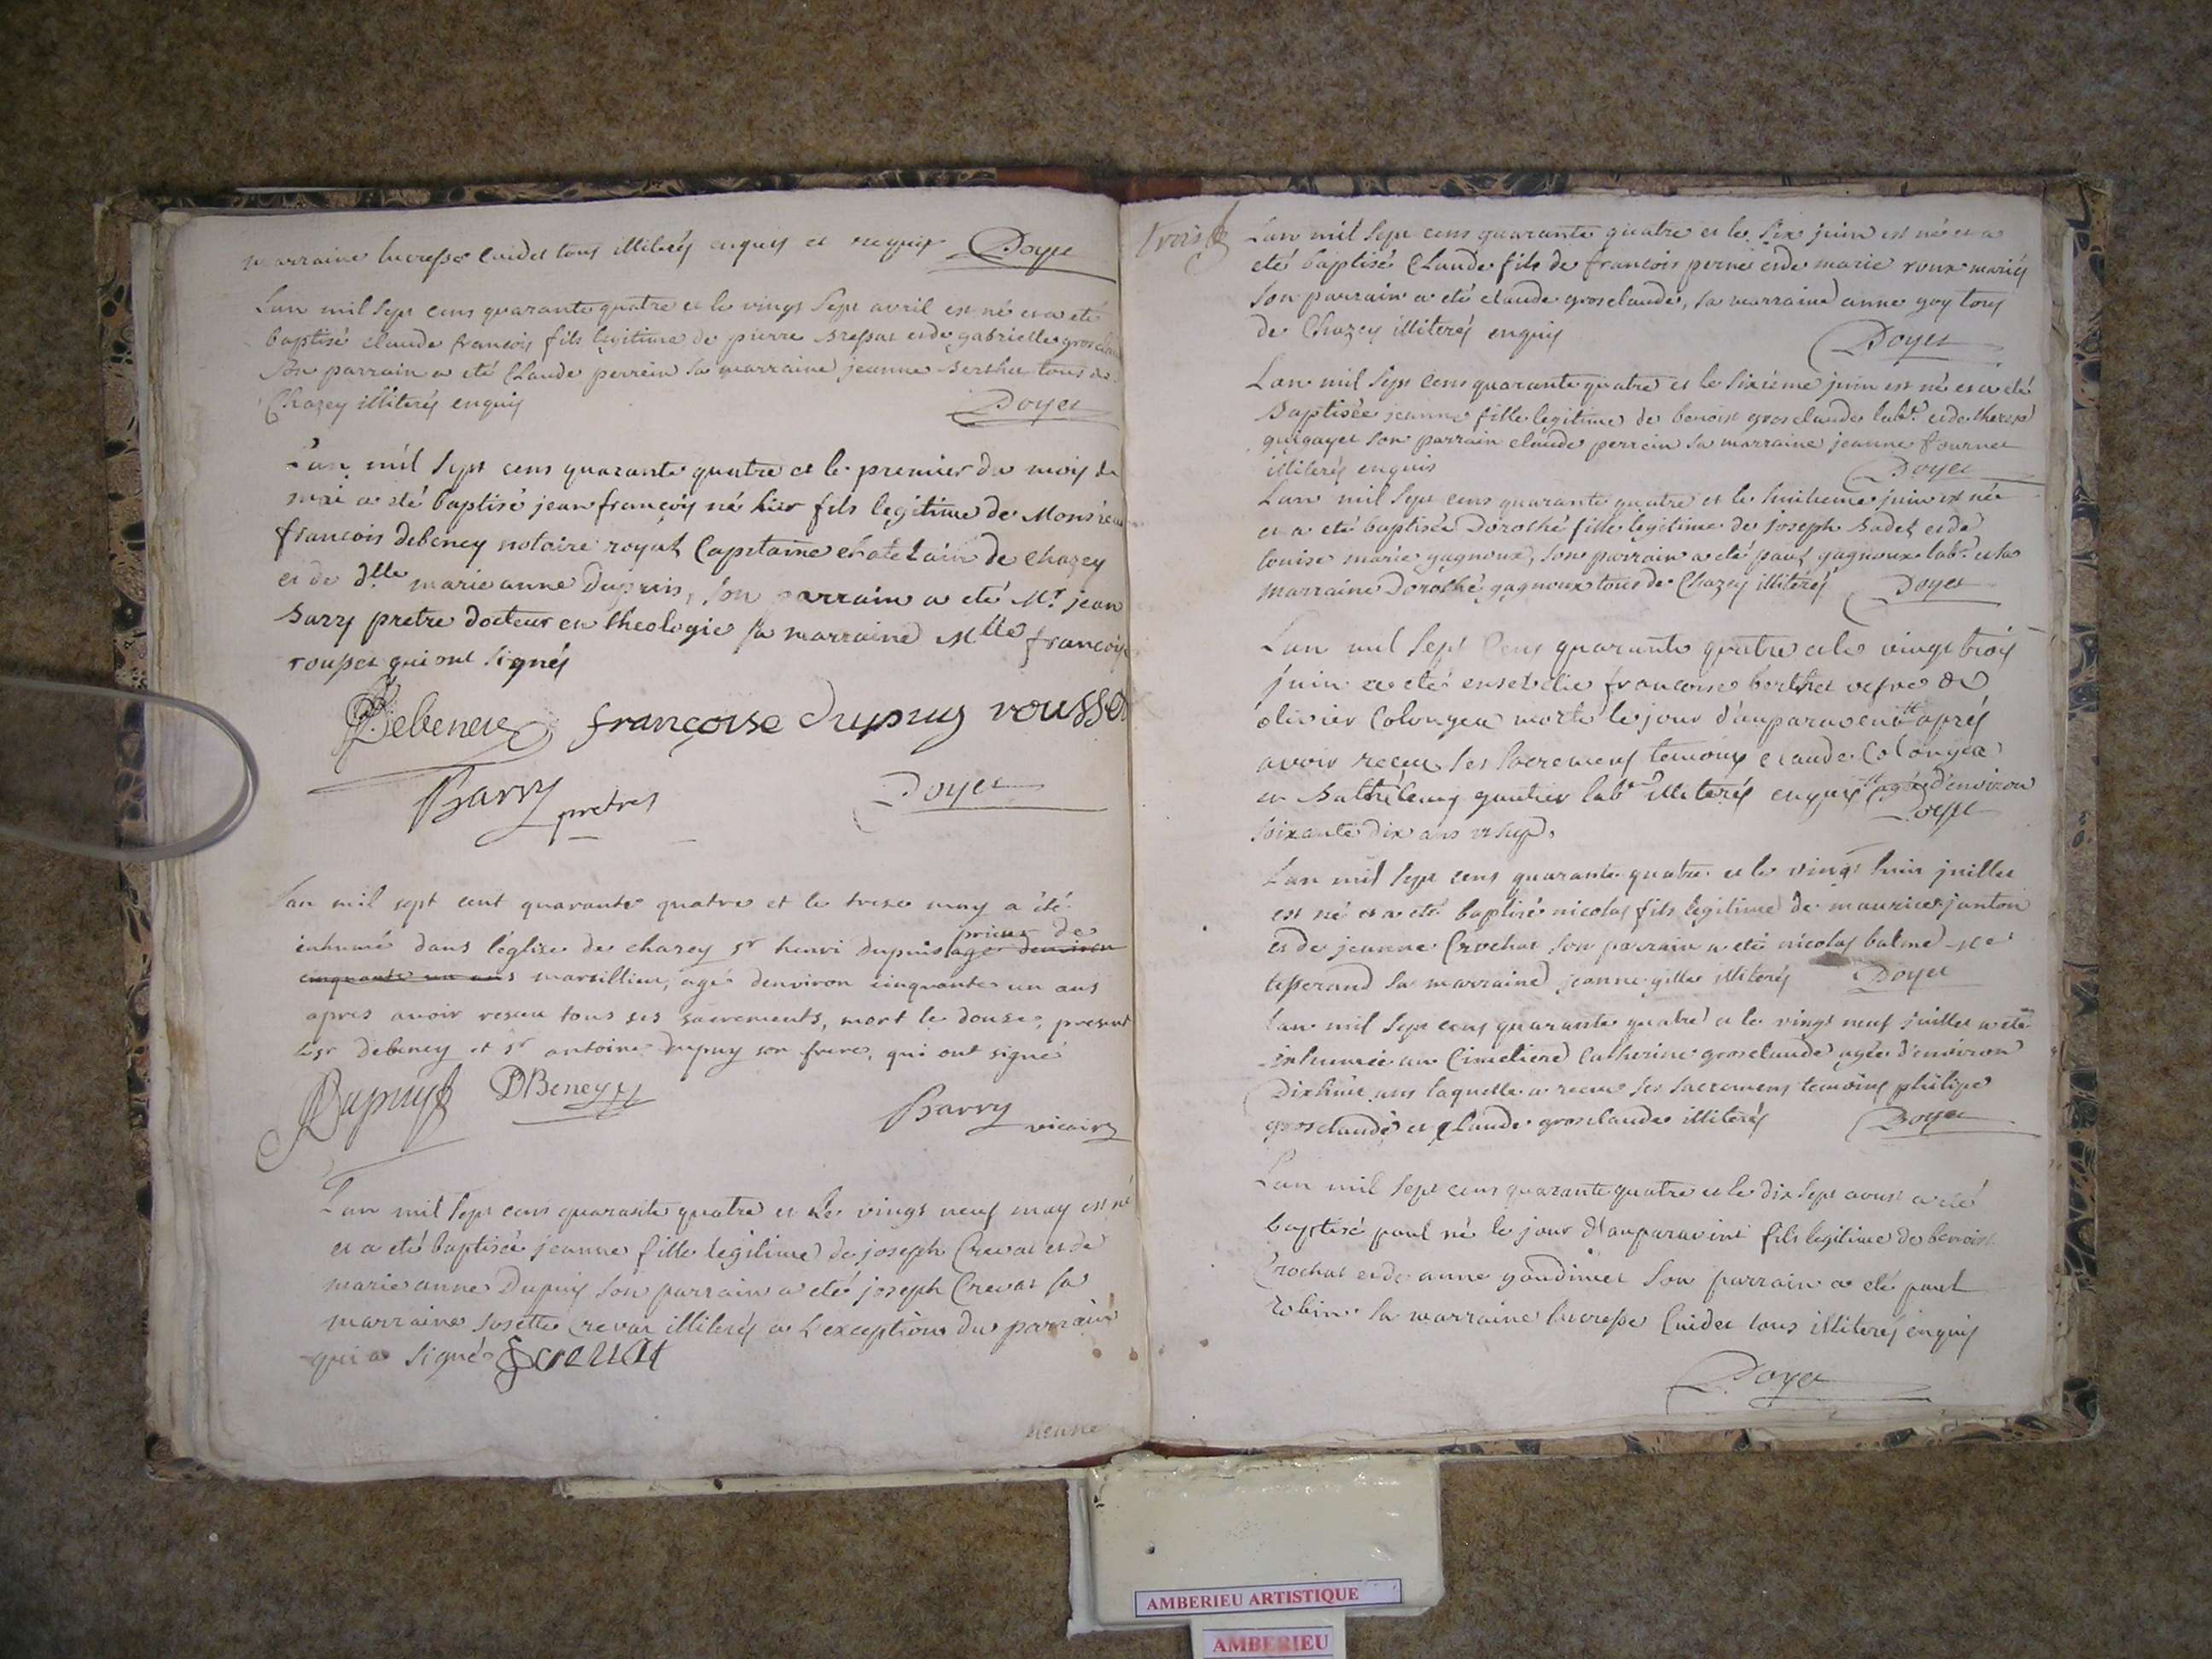 marraine lucresse Cuidet tous illiterés enquis et requis Doyet
Lan mil sept cens quarante quatre et le vingt sept avril est né et a eté
baptisé claude francois fils legitime de pierre Bressat et de gabrielle grosclau
son parrain a eté Claude perrein sa marraine jeanne Berthet tous de
Chazey illiterés enquis Doyet
L'an mil sept cens quarante quatre et le premier du mois de
mai a eté baptisé jean françois né hier fils legitime de Monsieu
francois debeney notaire royal Capitaine chatelain de Chazey
et de dlle marie anne Dupuis, son parrain a eté Mr jean
Barry pretre docteur en theologie sa marraine Mlle françoise
rousset qui ont signés
Debeney françoise dupuy rousset
Barry pretre Doyet
Lan mil sept cent quarante quatre et le treze may a été
inhumé dans léglise de chazey sr henri dupuis agé denviron
prieur de
cinquante un ans marsillieu, agé denviron cinquante un ans
apres avoir reseu tous ses sacrements, mort le douze, present
le sr debeney et sr antoine dupuy son frere, qui ont signé
Dupuy DBeney
Barry vicaire
L'an mil sept cens quarante quatre et le vingt neuf may est né
et a eté baptisée jeanne fille legitime de joseph Crevat et de
marie anne Dupuis son parrain a eté joseph Crevat sa
marraine josette Crevat illiterés a l'exception du parrain
qui a signé J Crevat
Lan mil sept cens quarante quatre et le six juin est né et a
eté baptisé Claude fils de francois perne et de marie roux mariés
son parrain a eté claude grosclaude, sa marraine anne goy tous
de Chazey illiterés enquis
Doyet
Lan mil sept cens quarante quatre et le sixième juin est né et a eté
Baptisée jeanne fille legitime de benoist grosclaude labr. et de therese
guigayet son parrain claude perrein sa marraine jeanne fournet
illiterés enquis Doyet
Lan mil sept cens quarante quatre et le huitieme juin est née
et a eté baptisée Dorothé fille legitime de joseph Badet et de
louise marie gagnoux, son parrain a eté paul gagnoux labr. et sa
marraine Dorothé gagnoux tous de Chazey illiterés Doyet
Lan mil sept Cens quarante quatre et le vingt trois
juin a eté ensevelie francoise berthet vefve de
olivier Colongea morte le jour d'auparavent après
avoir receu ses sacremens temoins claude Colongea
et Barthelemy gautier labr. illiterés enquis agée d'environ
soixante dix ans
Doyet
Lan mil sept cens quarante quatre et le vingt huit juillet
est né et a eté baptisé nicolas fils legitime de maurice janton
et de jeanne Crochat son parrain a eté nicolas balme Me
tisserand sa marraine jeanne gille illiterés Doyet
Lan mil sept cens quarante quatre et le vingt neuf juillet a eté
inhumée au Cimetiere Catherine grosclaude agée d'environ
Dixhuit ans laquelle a receu ses sacremens temoins philipe
grosclaude et Claude grosclaude illiterés Doyet
Lan mil sept cens quarante quatre et le dix sept avust a eté
baptisé paul né le jour d'auparavent fils legitime de benoist
Crochat et de anne goudimet son parrain a eté paul
robin sa marraine lucresse Cuidet tous illiterés enquis
Doyet
AMBERIEU ARTISTIQUE
AMBERIEU